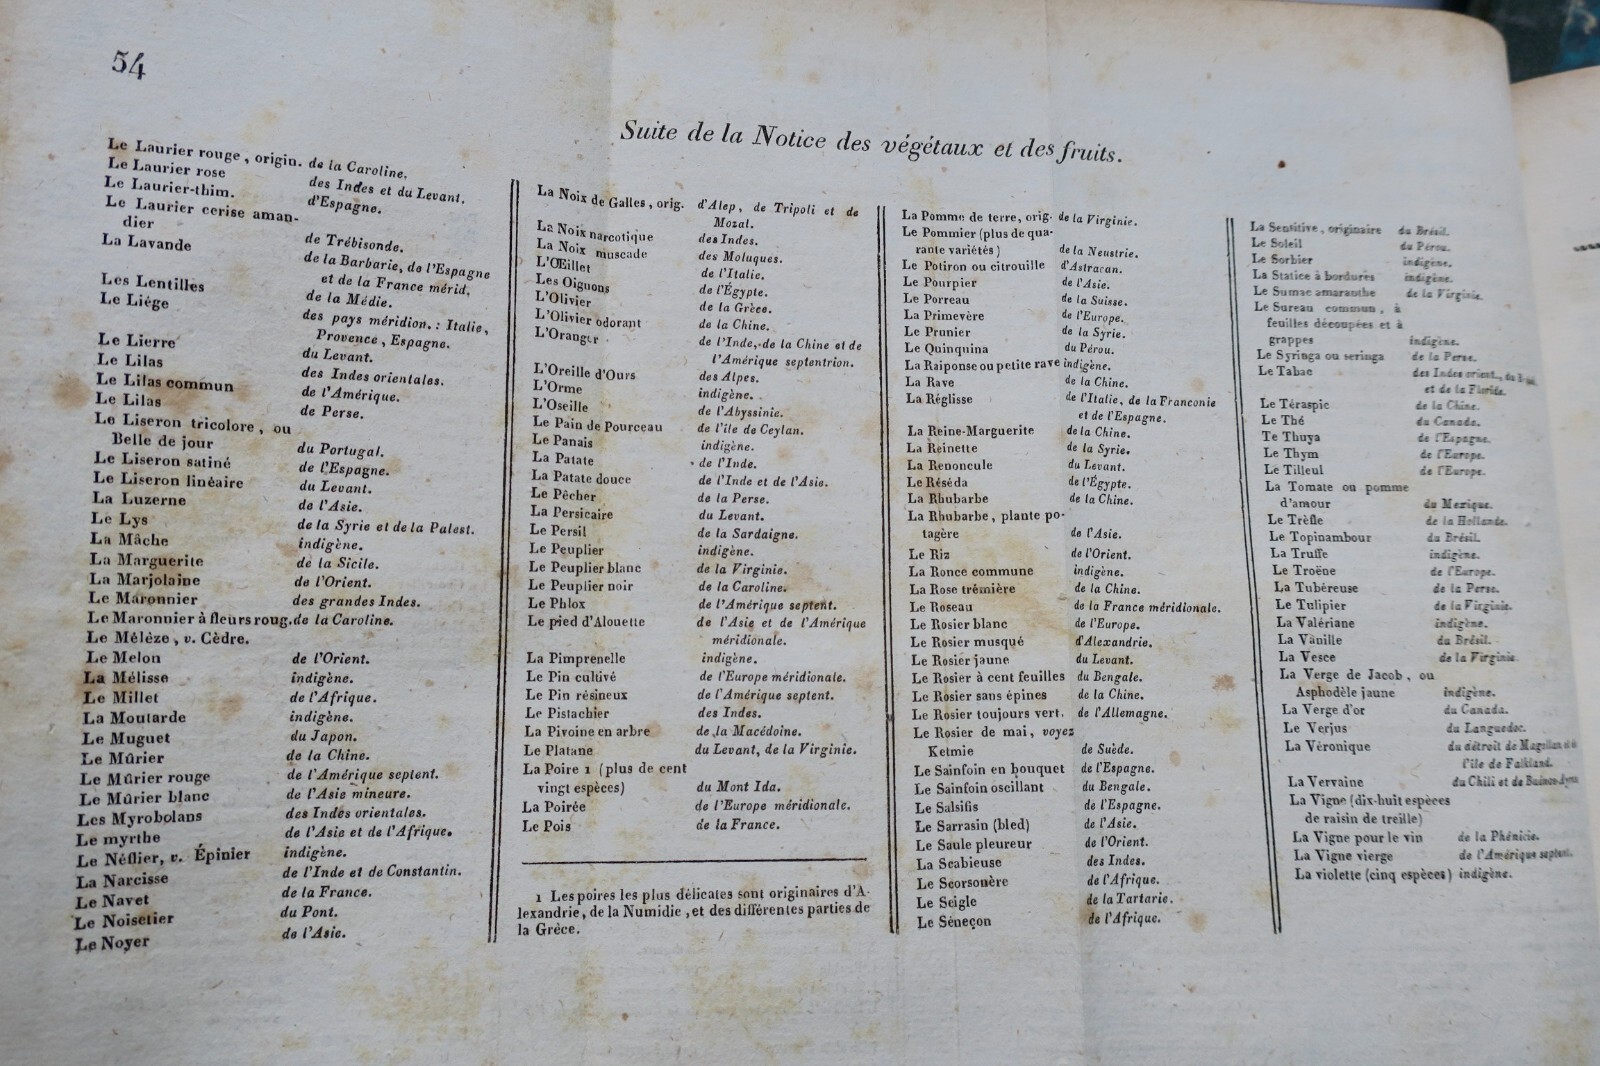 54
Suite de la Notice des végétaux et des fruits.
Le Laurier rouge, origin. de la Caroline.
Le Laurier rose des Indes et du Levant.
Le Laurier-thim. d'Espagne.
Le Laurier cerise aman-
dier de Trébisonde.
La Lavande de la Barbarie, de l'Espagne
et de la France mérid.
Les Lentilles de la Médie.
Le Liége des pays méridion. : Italie,
Provence, Espagne.
Le Lierre du Levant.
Le Lilas des Indes orientales.
Le Lilas commun de l'Amérique.
Le Lilas de Perse.
Le Liseron tricolore, ou
Belle de jour du Portugal.
Le Liseron satiné de l'Espagne.
Le Liseron linéaire du Levant.
La Luzerne de l'Asie.
Le Lys de la Syrie et de la Palest.
La Mâche indigène.
La Marguerite de la Sicile.
La Marjolaine de l'Orient.
Le Maronnier des grandes Indes.
Le Maronnier à fleurs roug. de la Caroline.
Le Mélèze, v. Cèdre.
Le Melon de l'Orient.
La Mélisse indigène.
Le Millet de l'Afrique.
La Moutarde indigène.
Le Muguet du Japon.
Le Mûrier de la Chine.
Le Mûrier rouge de l'Amérique septent.
Le Mûrier blanc de l'Asie mineure.
Les Myrobolans des Indes orientales.
Le myrthe de l'Asie et de l'Afrique.
Le Néflier, v. Épinier indigène.
La Narcisse de l'Inde et de Constantin.
Le Navet de la France.
Le Noisetier du Pont.
Le Noyer de l'Asie.
La Noix de Galles, orig. d'Alep, de Tripoli et de
Mozal.
La Noix narcotique des Indes.
La Noix muscade des Moluques.
L'Œillet de l'Italie.
Les Oignons de l'Égypte.
L'Olivier de la Grèce.
L'Olivier odorant de la Chine.
L'Oranger de l'Inde, de la Chine et de
l'Amérique septentrion.
L'Oreille d'Ours des Alpes.
L'Orme indigène.
L'Oseille de l'Abyssinie.
Le Pain de Pourceau de l'île de Ceylan.
Le Panais indigène.
La Patate de l'Inde.
La Patate douce de l'Inde et de l'Asie.
Le Pêcher de la Perse.
La Persicaire du Levant.
Le Persil de la Sardaigne.
Le Peuplier indigène.
Le Peuplier blanc de la Virginie.
Le Peuplier noir de la Caroline.
Le Phlox de l'Amérique septent.
Le pied d'Alouette de l'Asie et de l'Amérique
méridionale.
La Pimprenelle indigène.
Le Pin cultivé de l'Europe méridionale.
Le Pin résineux de l'Amérique septent.
Le Pistachier des Indes.
La Pivoine en arbre de la Macédoine.
Le Platane du Levant, de la Virginie.
La Poire 1 (plus de cent
vingt espèces) du Mont Ida.
La Poirée de l'Europe méridionale.
Le Pois de la France.
1 Les poires les plus délicates sont originaires d'A-
lexandrie, de la Numidie, et des différentes parties de
la Grèce.
La Pomme de terre, orig. de la Virginie.
Le Pommier (plus de qua-
rante variétés) de la Neustrie.
Le Potiron ou citrouille d'Astracan.
Le Pourpier de l'Asie.
Le Porreau de la Suisse.
La Primevère de l'Europe.
Le Prunier de la Syrie.
Le Quinquina du Pérou.
La Raiponse ou petite rave indigène.
La Rave de la Chine.
La Réglisse de l'Italie, de la Franconie
et de l'Espagne.
La Reine-Marguerite de la Chine.
La Reinette de la Syrie.
La Renoncule du Levant.
Le Réséda de l'Égypte.
La Rhubarbe de la Chine.
La Rhubarbe, plante po-
tagère de l'Asie.
Le Riz de l'Orient.
La Ronce commune indigène.
La Rose trémière de la Chine.
Le Roseau de la France méridionale.
Le Rosier blanc de l'Europe.
Le Rosier musqué d'Alexandrie.
Le Rosier jaune du Levant.
Le Rosier à cent feuilles du Bengale.
Le Rosier sans épines de la Chine.
Le Rosier toujours vert. de l'Allemagne.
Le Rosier de mai, voyez
Ketmie de Suède.
Le Sainfoin en bouquet de l'Espagne.
Le Sainfoin oscillant du Bengale.
Le Salsifis de l'Espagne.
Le Sarrasin (bled) de l'Asie.
Le Saule pleureur de l'Orient.
La Scabieuse des Indes.
Le Scorsonère de l'Afrique.
Le Seigle de la Tartarie.
Le Séneçon de l'Afrique.
La Sensitive, originaire du Brésil.
Le Soleil du Pérou.
Le Sorbier indigène.
La Statice à bordures indigène.
Le Sumac amaranthe de la Virginie.
Le Sureau commun, à
feuilles découpées et à
grappes indigène.
Le Syringa ou seringa de la Perse.
Le Tabac des Indes orient., du
et de la Floride.
Le Téraspic de la Chine.
Le Thé du Canada.
Te Thuya de l'Espagne.
Le Thym de l'Europe.
Le Tilleul de l'Europe.
La Tomate ou pomme
d'amour du Mexique.
Le Trèfle de la Hollande.
Le Topinambour du Brésil.
La Truffe indigène.
Le Troëne de l'Europe.
La Tubéreuse de la Perse.
Le Tulipier de la Virginie.
La Valériane indigène.
La Vanille du Brésil.
La Vesce de la Virginie.
La Verge de Jacob, ou
Asphodèle jaune indigène.
La Verge d'or du Canada.
Le Verjus du Languedoc.
La Véronique du détroit de Magellan et de
l'île de Falkland.
La Vervaine du Chili et de Buénos-Ayres
La Vigne (dix-huit espèces
de raisin de treille)
La Vigne pour le vin de la Phénicie.
La Vigne vierge de l'Amérique septent.
La violette (cinq espèces) indigène.